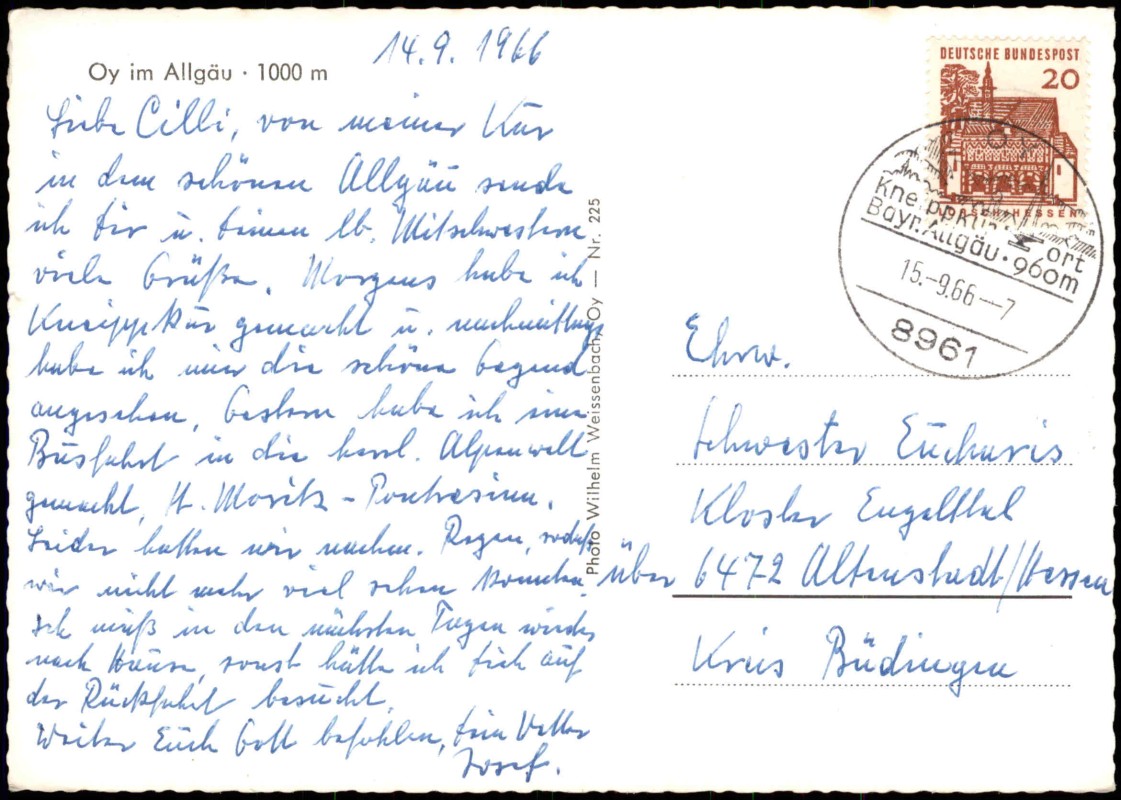 14.9.1966
Oy im Allgäu · 1000 m
Liebe Cilli, von meiner Kur
in dem schönen Allgäu sende
ich Dir u. Deinen lb. Mitschwestern
viele Grüße. Morgens habe ich
Kneippkur gemacht u. nachmittags
habe ich mir die schöne Gegend
angesehen, Gestern habe ich eine
Busfahrt in die herrl. Alpenwelt
gemacht, St. Moritz - Pontresina.
Leider hatten wir nachm. Regen, sodaß
wir nicht mehr viel sehen konnten.
Ich muß in den nächsten Tagen wieder
nach Hause, sonst hätte ich Dich auf
der Rückfahrt besucht.
Weiter Euch Gott befohlen, Dein Vetter
Josef.
Photo Wilhelm Weissenbach, Oy — Nr. 225
DEUTSCHE BUNDESPOST
20
LORSCH/HESSEN
OY
Kneippkurort
Bayr. Allgäu · 960m
15.-9.66-7
8961
Ehrw.
Schwester Eucharis
Kloster Engelthal
über 6472 Altenstadt/Hessen
Kreis Büdingen